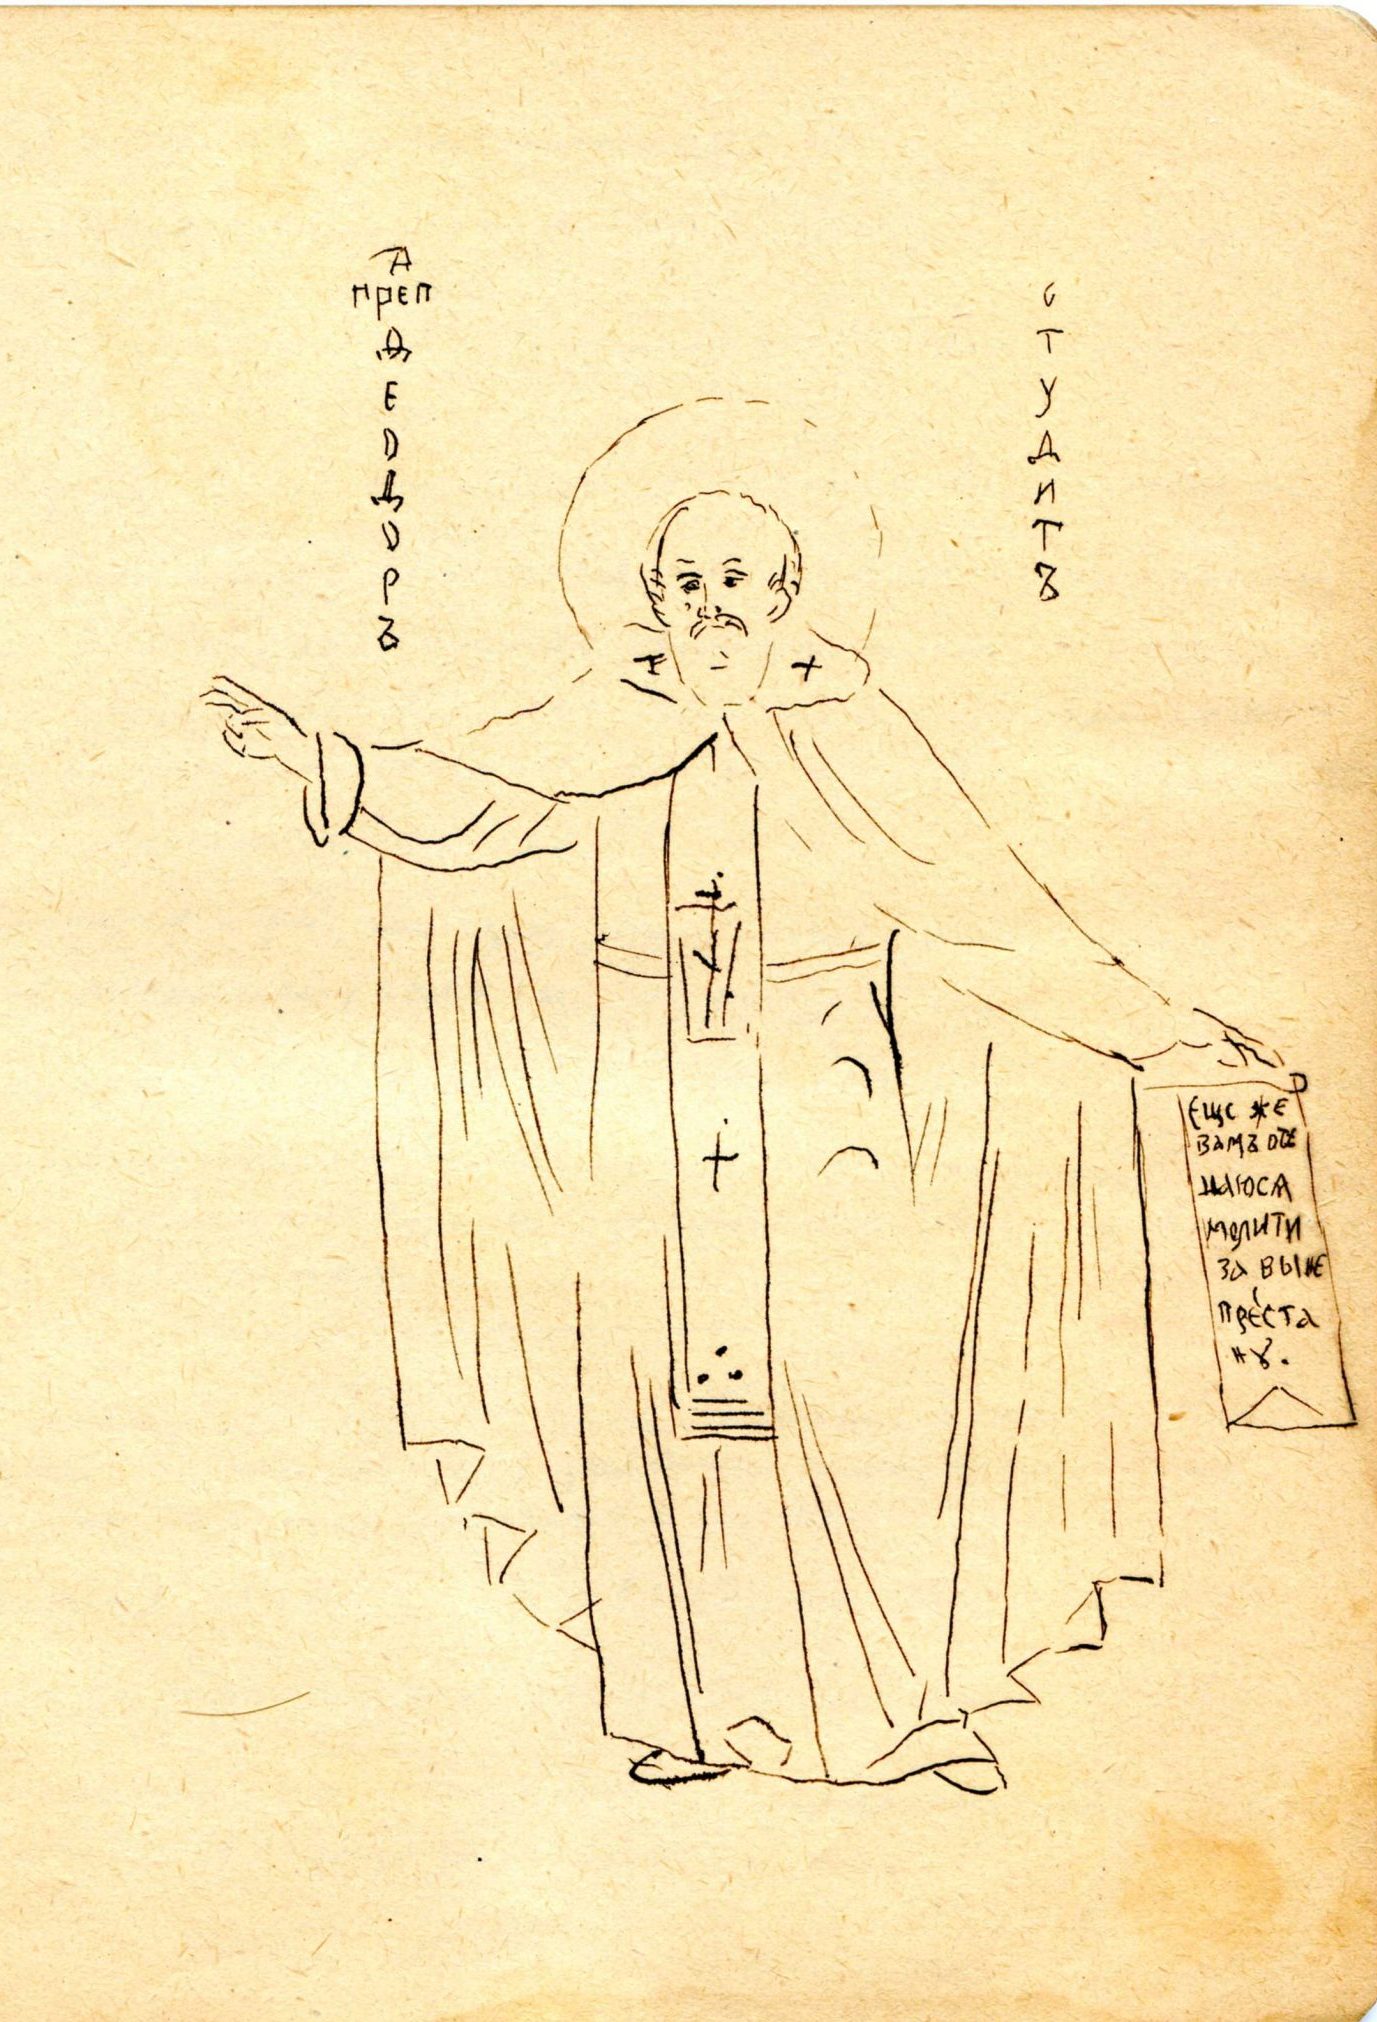 А
ПРЕП
ѲЕОДОРЪ
СТУДИТЪ
ЕЩЕ ЖЕ
ВАМЪ
ЩАЮСѦ
МОЛИТИ
ЗА ВЫ НЕ
ПРЕСТА
НꙊ.